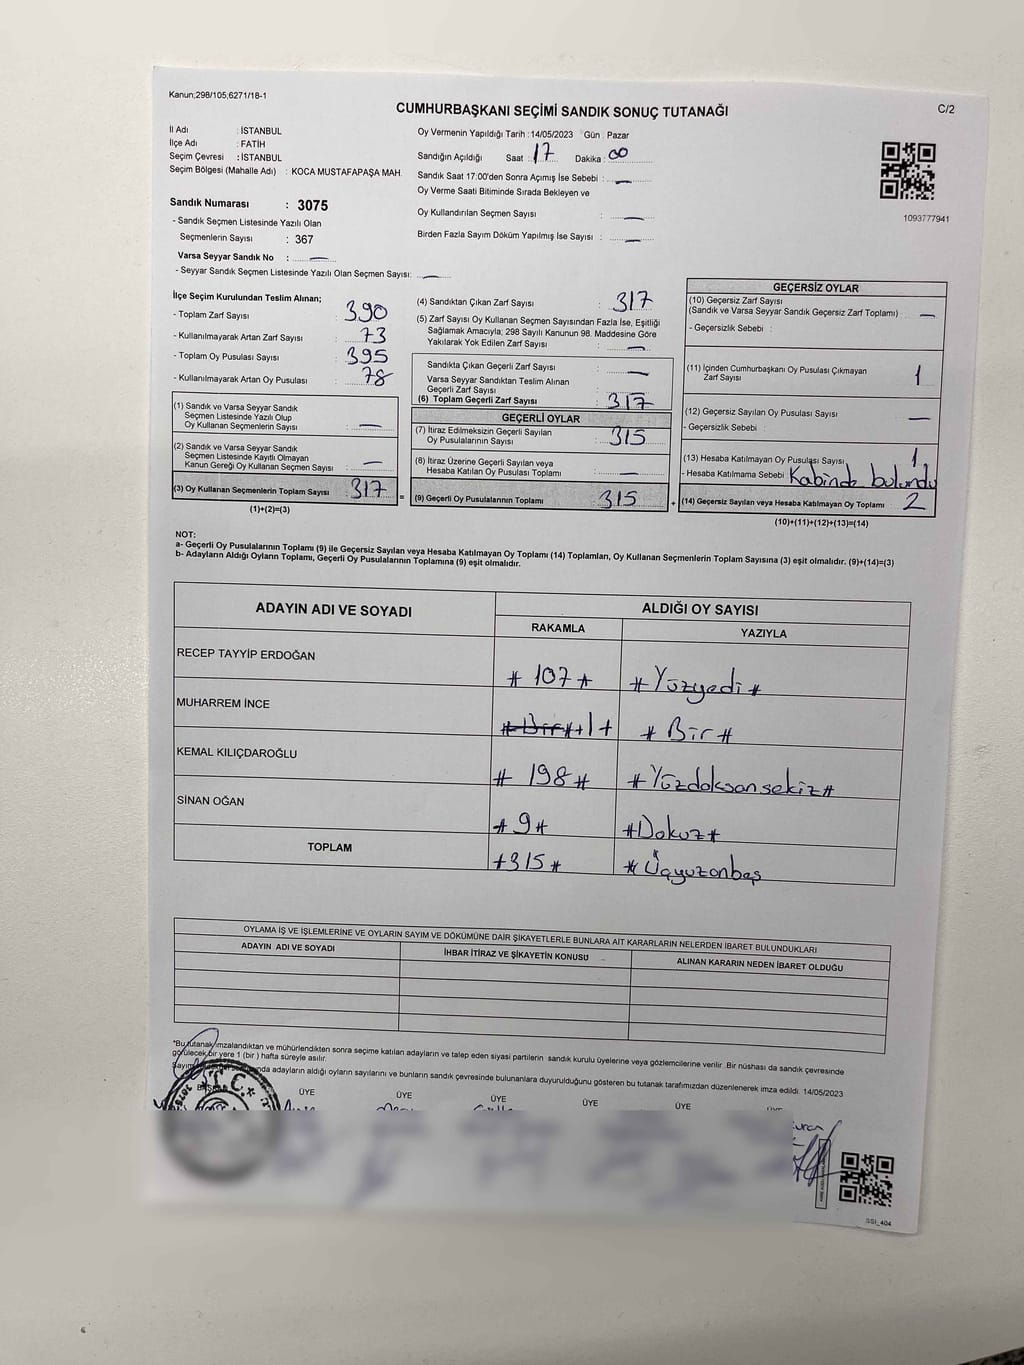 Kanun;298/105;6271/18-1
CUMHURBAŞKANI SEÇİMİ SANDIK SONUÇ TUTANAĞI
C/2
İl Adı : İSTANBUL
İlçe Adı : FATİH
Seçim Çevresi : İSTANBUL
Seçim Bölgesi (Mahalle Adı) : KOCA MUSTAFAPAŞA MAH.
Sandık Numarası : 3075
- Sandık Seçmen Listesinde Yazılı Olan
Seçmenlerin Sayısı : 367
Varsa Seyyar Sandık No : —
- Seyyar Sandık Seçmen Listesinde Yazılı Olan Seçmen Sayısı: —
Oy Vermenin Yapıldığı Tarih : 14/05/2023 Gün : Pazar
Sandığın Açıldığı Saat : 17 Dakika : 00
Sandık Saat 17:00'den Sonra Açımış İse Sebebi : —
Oy Verme Saati Bitiminde Sırada Bekleyen ve
Oy Kullandırılan Seçmen Sayısı : —
Birden Fazla Sayım Döküm Yapılmış İse Sayısı : —
1093777941
İlçe Seçim Kurulundan Teslim Alınan;
- Toplam Zarf Sayısı : 390
- Kullanılmayarak Artan Zarf Sayısı : 73
- Toplam Oy Pusulası Sayısı : 395
- Kullanılmayarak Artan Oy Pusulası : 78
(1) Sandık ve Varsa Seyyar Sandık
Seçmen Listesinde Yazılı Olup
Oy Kullanan Seçmenlerin Sayısı : —
(2) Sandık ve Varsa Seyyar Sandık
Seçmen Listesinde Kayıtlı Olmayan
Kanun Gereği Oy Kullanan Seçmen Sayısı : —
(3) Oy Kullanan Seçmenlerin Toplam Sayısı : 317
(1)+(2)=(3)
(4) Sandıktan Çıkan Zarf Sayısı : 317
(5) Zarf Sayısı Oy Kullanan Seçmen Sayısından Fazla İse, Eşitliği
Sağlamak Amacıyla; 298 Sayılı Kanunun 98. Maddesine Göre
Yakılarak Yok Edilen Zarf Sayısı : —
Sandıkta Çıkan Geçerli Zarf Sayısı : —
Varsa Seyyar Sandıktan Teslim Alınan
Geçerli Zarf Sayısı :
(6) Toplam Geçerli Zarf Sayısı : 317
GEÇERLİ OYLAR
(7) İtiraz Edilmeksizin Geçerli Sayılan
Oy Pusulalarının Sayısı : 315
(8) İtiraz Üzerine Geçerli Sayılan veya
Hesaba Katılan Oy Pusulası Toplamı : —
= (9) Geçerli Oy Pusulalarının Toplamı : 315
GEÇERSİZ OYLAR
(10) Geçersiz Zarf Sayısı
(Sandık ve Varsa Seyyar Sandık Geçersiz Zarf Toplamı) : —
- Geçersizlik Sebebi :
(11) İçinden Cumhurbaşkanı Oy Pusulası Çıkmayan
Zarf Sayısı : 1
(12) Geçersiz Sayılan Oy Pusulası Sayısı : —
- Geçersizlik Sebebi :
(13) Hesaba Katılmayan Oy Pusulası Sayısı : 1
- Hesaba Katılmama Sebebi : Kabinde bulundu
+ (14) Geçersiz Sayılan veya Hesaba Katılmayan Oy Toplamı : 2
(10)+(11)+(12)+(13)=(14)
NOT:
a- Geçerli Oy Pusulalarının Toplamı (9) ile Geçersiz Sayılan veya Hesaba Katılmayan Oy Toplamı (14) Toplamları, Oy Kullanan Seçmenlerin Toplam Sayısına (3) eşit olmalıdır. (9)+(14)=(3)
b- Adayların Aldığı Oyların Toplamı, Geçerli Oy Pusulalarının Toplamına (9) eşit olmalıdır.
ADAYIN ADI VE SOYADI ALDIĞI OY SAYISI
RAKAMLA YAZIYLA
RECEP TAYYİP ERDOĞAN # 107 # # Yüzyedi #
MUHARREM İNCE # Bir # # 1 # # Bir #
KEMAL KILIÇDAROĞLU # 198 # # Yüzdoksansekiz #
SİNAN OĞAN # 9 # # Dokuz #
TOPLAM # 315 # # Üçyüzonbeş
OYLAMA İŞ VE İŞLEMLERİNE VE OYLARIN SAYIM VE DÖKÜMÜNE DAİR ŞİKAYETLERLE BUNLARA AİT KARARLARIN NELERDEN İBARET BULUNDUKLARI
ADAYIN ADI VE SOYADI İHBAR İTİRAZ VE ŞİKAYETİN KONUSU ALINAN KARARIN NEDEN İBARET OLDUĞU
*Bu tutanak imzalandıktan ve mühürlendikten sonra seçime katılan adayların ve talep eden siyasi partilerin sandık kurulu üyelerine veya gözlemcilerine verilir. Bir nüshası da sandık çevresinde
görülecek bir yere 1 (bir) hafta süreyle asılır.
adayların aldığı oyların sayılarını ve bunların sandık çevresinde bulunanlara duyurulduğunu gösteren bu tutanak tarafımızdan düzenlenerek imza edildi. 14/05/2023
ÜYE ÜYE ÜYE ÜYE ÜYE
T.C.
SSİ_404